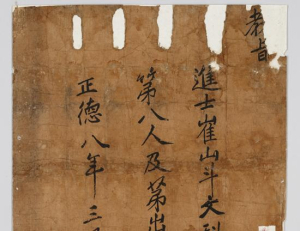 教旨
進士崔山斗文科
第八人及第出
正德八年三月